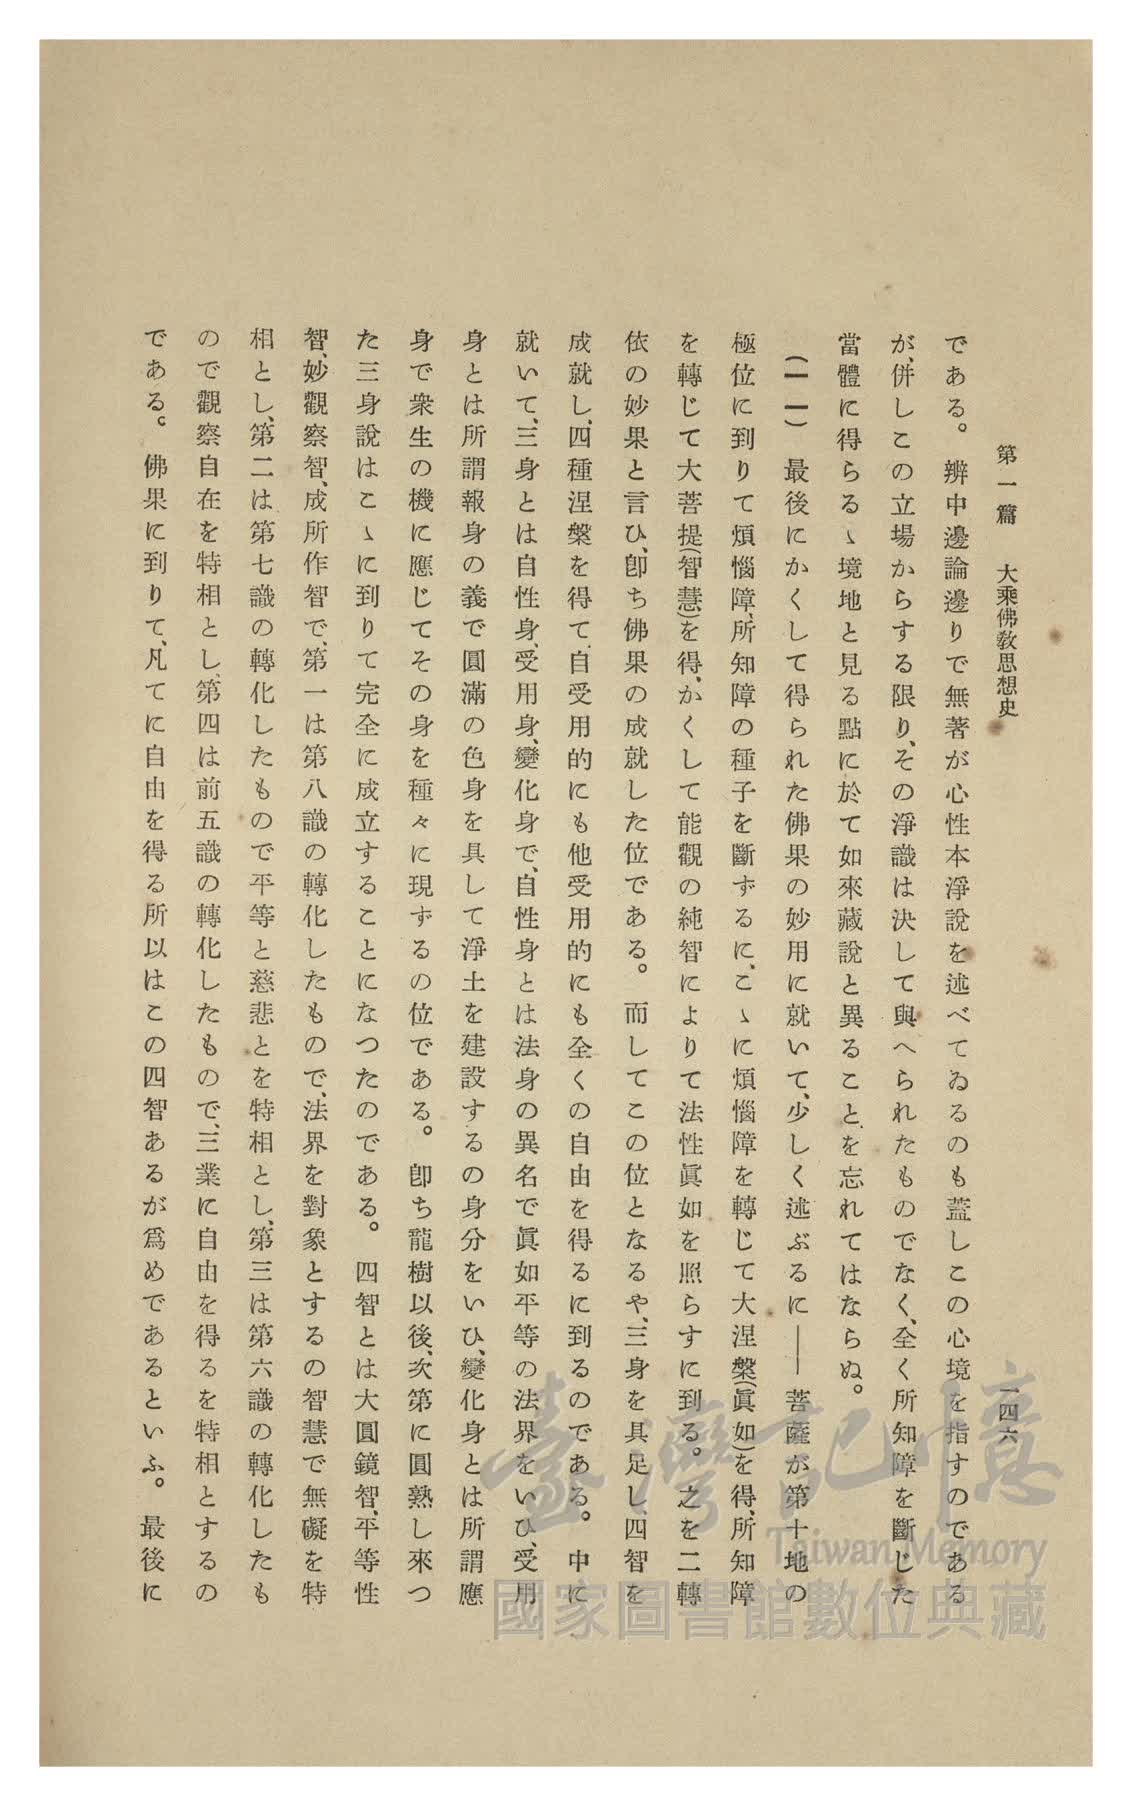 第一篇　大乘佛敎思想史　一四六
である。辨中邊論邊りで無著が心性本淨說を述べてゐるのも蓋しこの心境を指すのである
が、併しこの立場からする限り、その淨識は決して與へられたものでなく、全く所知障を斷じた
當體に得らるゝ境地と見る點に於て如來藏說と異ることを忘れてはならぬ。
(一一)　最後にかくして得られた佛果の妙用に就いて、少しく述ぶるに――菩薩が第十地の
極位に到りて煩惱障、所知障の種子を斷ずるに、こゝに煩惱障を轉じて大涅槃(眞如)を得、所知障
を轉じて大菩提(智慧)を得、かくして能觀の純智によりて法性眞如を照らすに到る。之を二轉
依の妙果と言ひ、卽ち佛果の成就した位である。而してこの位となるや、三身を具足し、四智を
成就し、四種涅槃を得て、自受用的にも他受用的にも全くの自由を得るに到るのである。中に
就いて、三身とは自性身、受用身、變化身で、自性身とは法身の異名で眞如平等の法界をいひ、受用
身とは所謂報身の義で圓滿の色身を具して淨土を建設するの身分をいひ、變化身とは所謂應
身で衆生の機に應じてその身を種々に現ずるの位である。卽ち龍樹以後、次第に圓熟し來つ
た三身說はこゝに到りて完全に成立することになつたのである。四智とは大圓鏡智、平等性
智、妙觀察智、成所作智で、第一は第八識の轉化したもので、法界を對象とするの智慧で無礙を特
相とし、第二は第七識の轉化したもので平等と慈悲とを特相とし、第三は第六識の轉化したも
ので觀察自在を特相とし、第四は前五識の轉化したもので、三業に自由を得るを特相とするの
である。佛果に到りて、凡てに自由を得る所以はこの四智あるが爲めであるといふ。最後に
臺灣記憶
Taiwan Memory
國家圖書館數位典藏